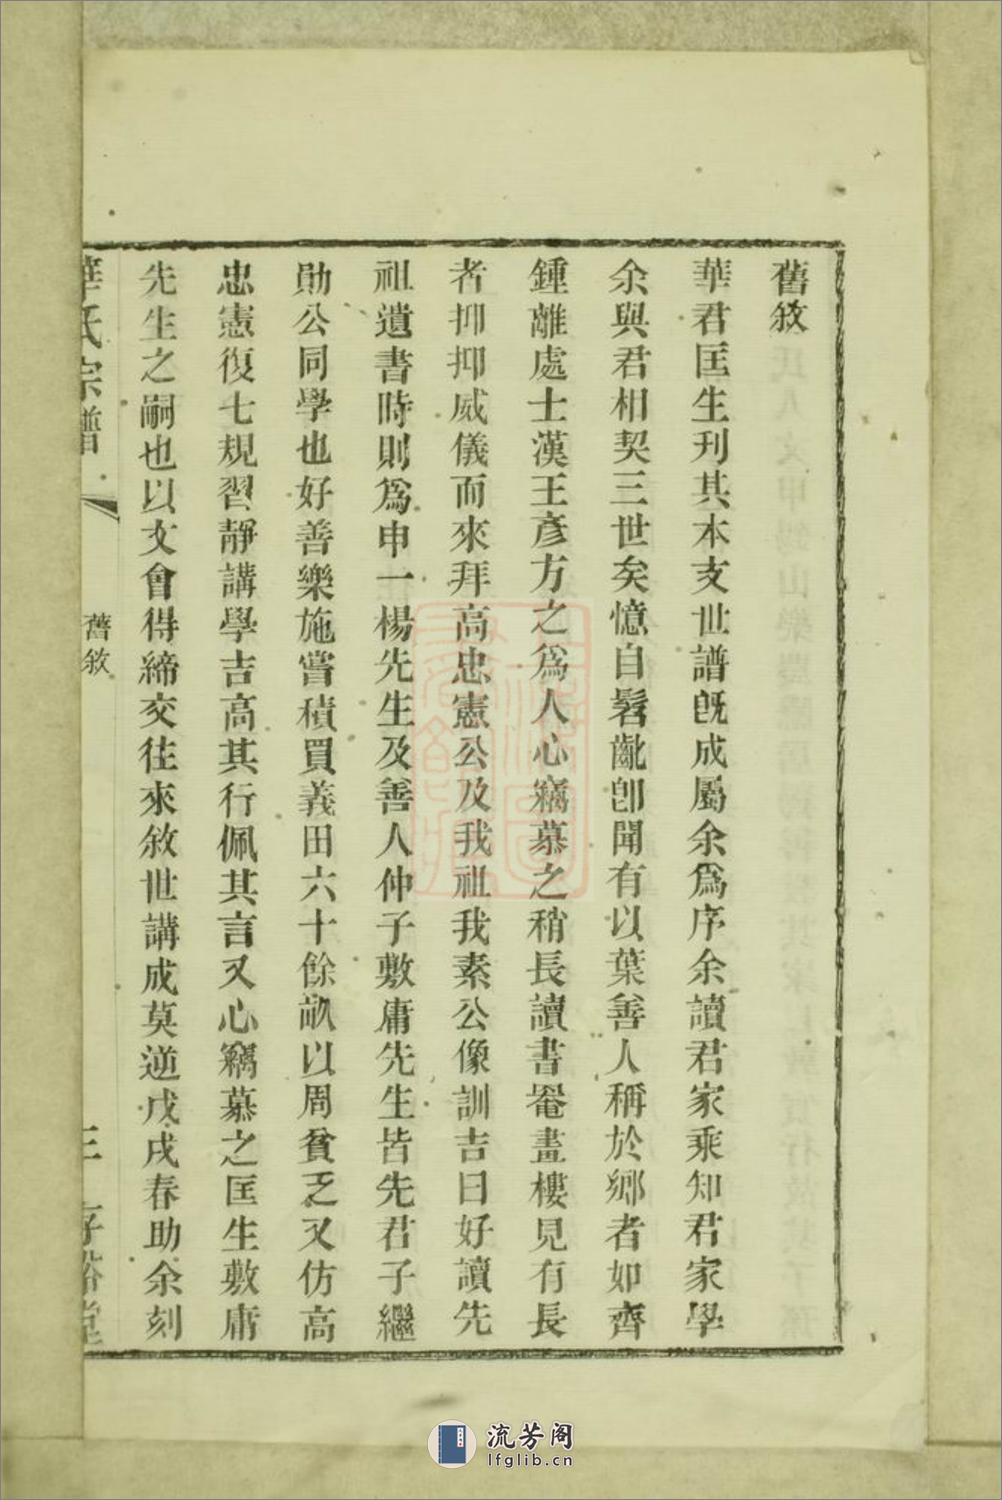 舊敘
華君匡生刊其本支世譜旣成屬余爲序余讀君家乘知君家學
余與君相契三世矣憶自髫齔卽聞有以葉善人稱於鄉者如齊
鍾離處士漢王彥方之爲人心竊慕之稍長讀書罨畫樓見有長
者抑抑威儀而來拜高忠憲公及我祖我素公像訓吉曰好讀先
祖遺書時則爲申一楊先生及善人仲子敷庸先生皆先君子繼
勛公同學也好善樂施嘗積買義田六十餘畝以周貧乏又仿高
忠憲復七規習靜講學吉高其行佩其言又心竊慕之匡生敷庸
先生之嗣也以文會得締交往來敘世講成莫逆戊戌春助余刻
華氏宗譜
舊敘
三
存裕堂
流芳阁
lfglib.cn